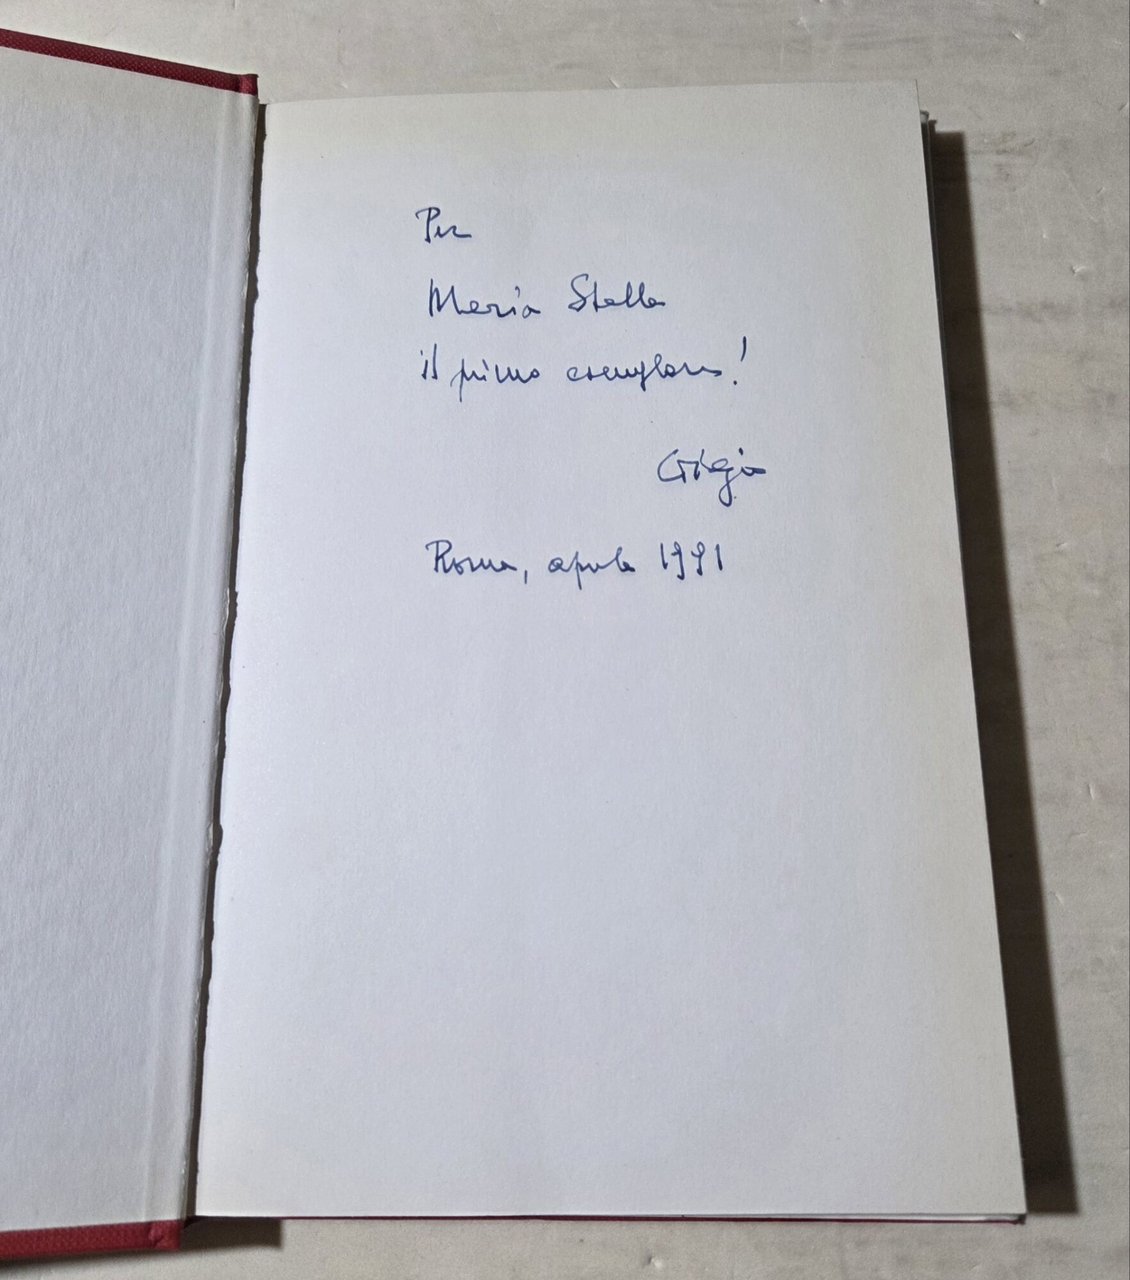 Per
Maria Stella
il primo esemplare!
Roma, aprile 1991